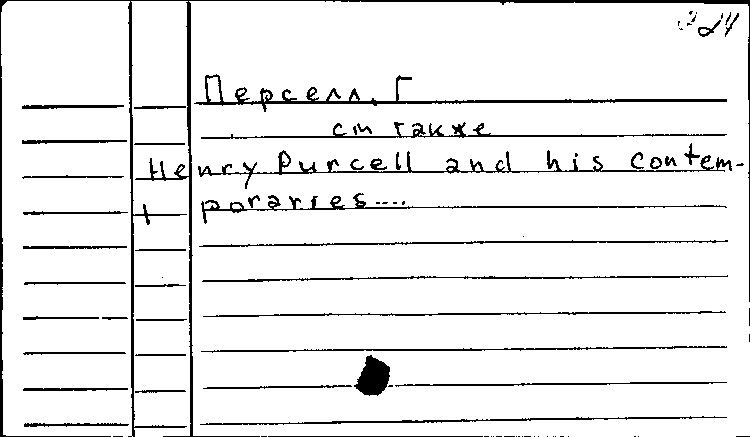 Перселл, Г
см также
Henry Purcell and his contem-
poraries....